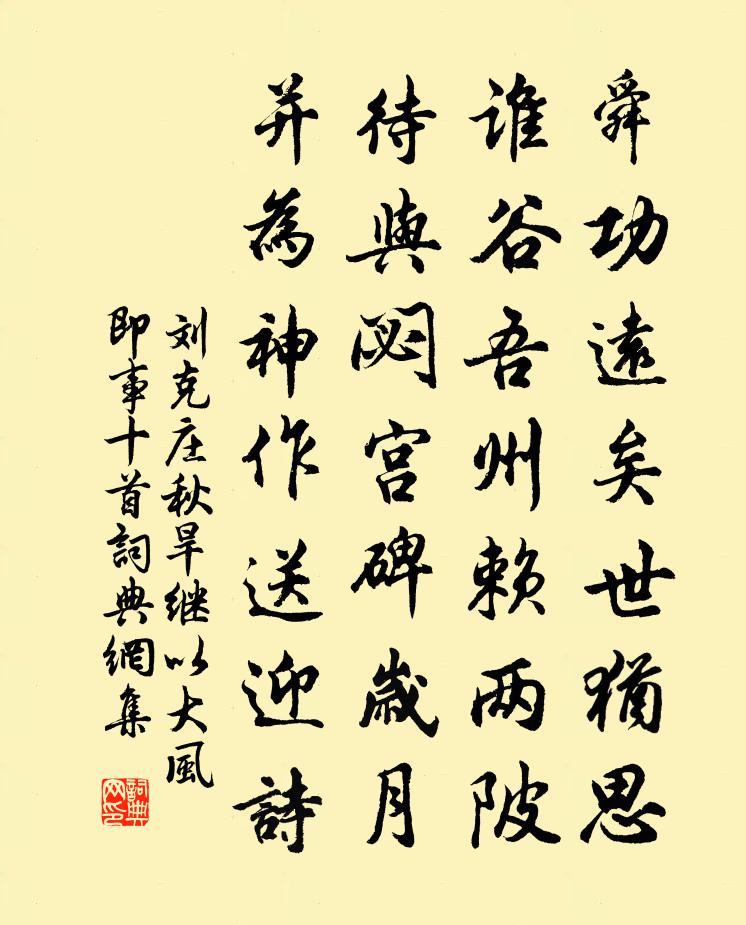 舜功遠矣世猶思
誰谷吾州赖两陂
待與閟宫碑歲月
并為神作送迎詩
刘克庄秋旱继以大風
即事十首詞典網集
詞典
网印